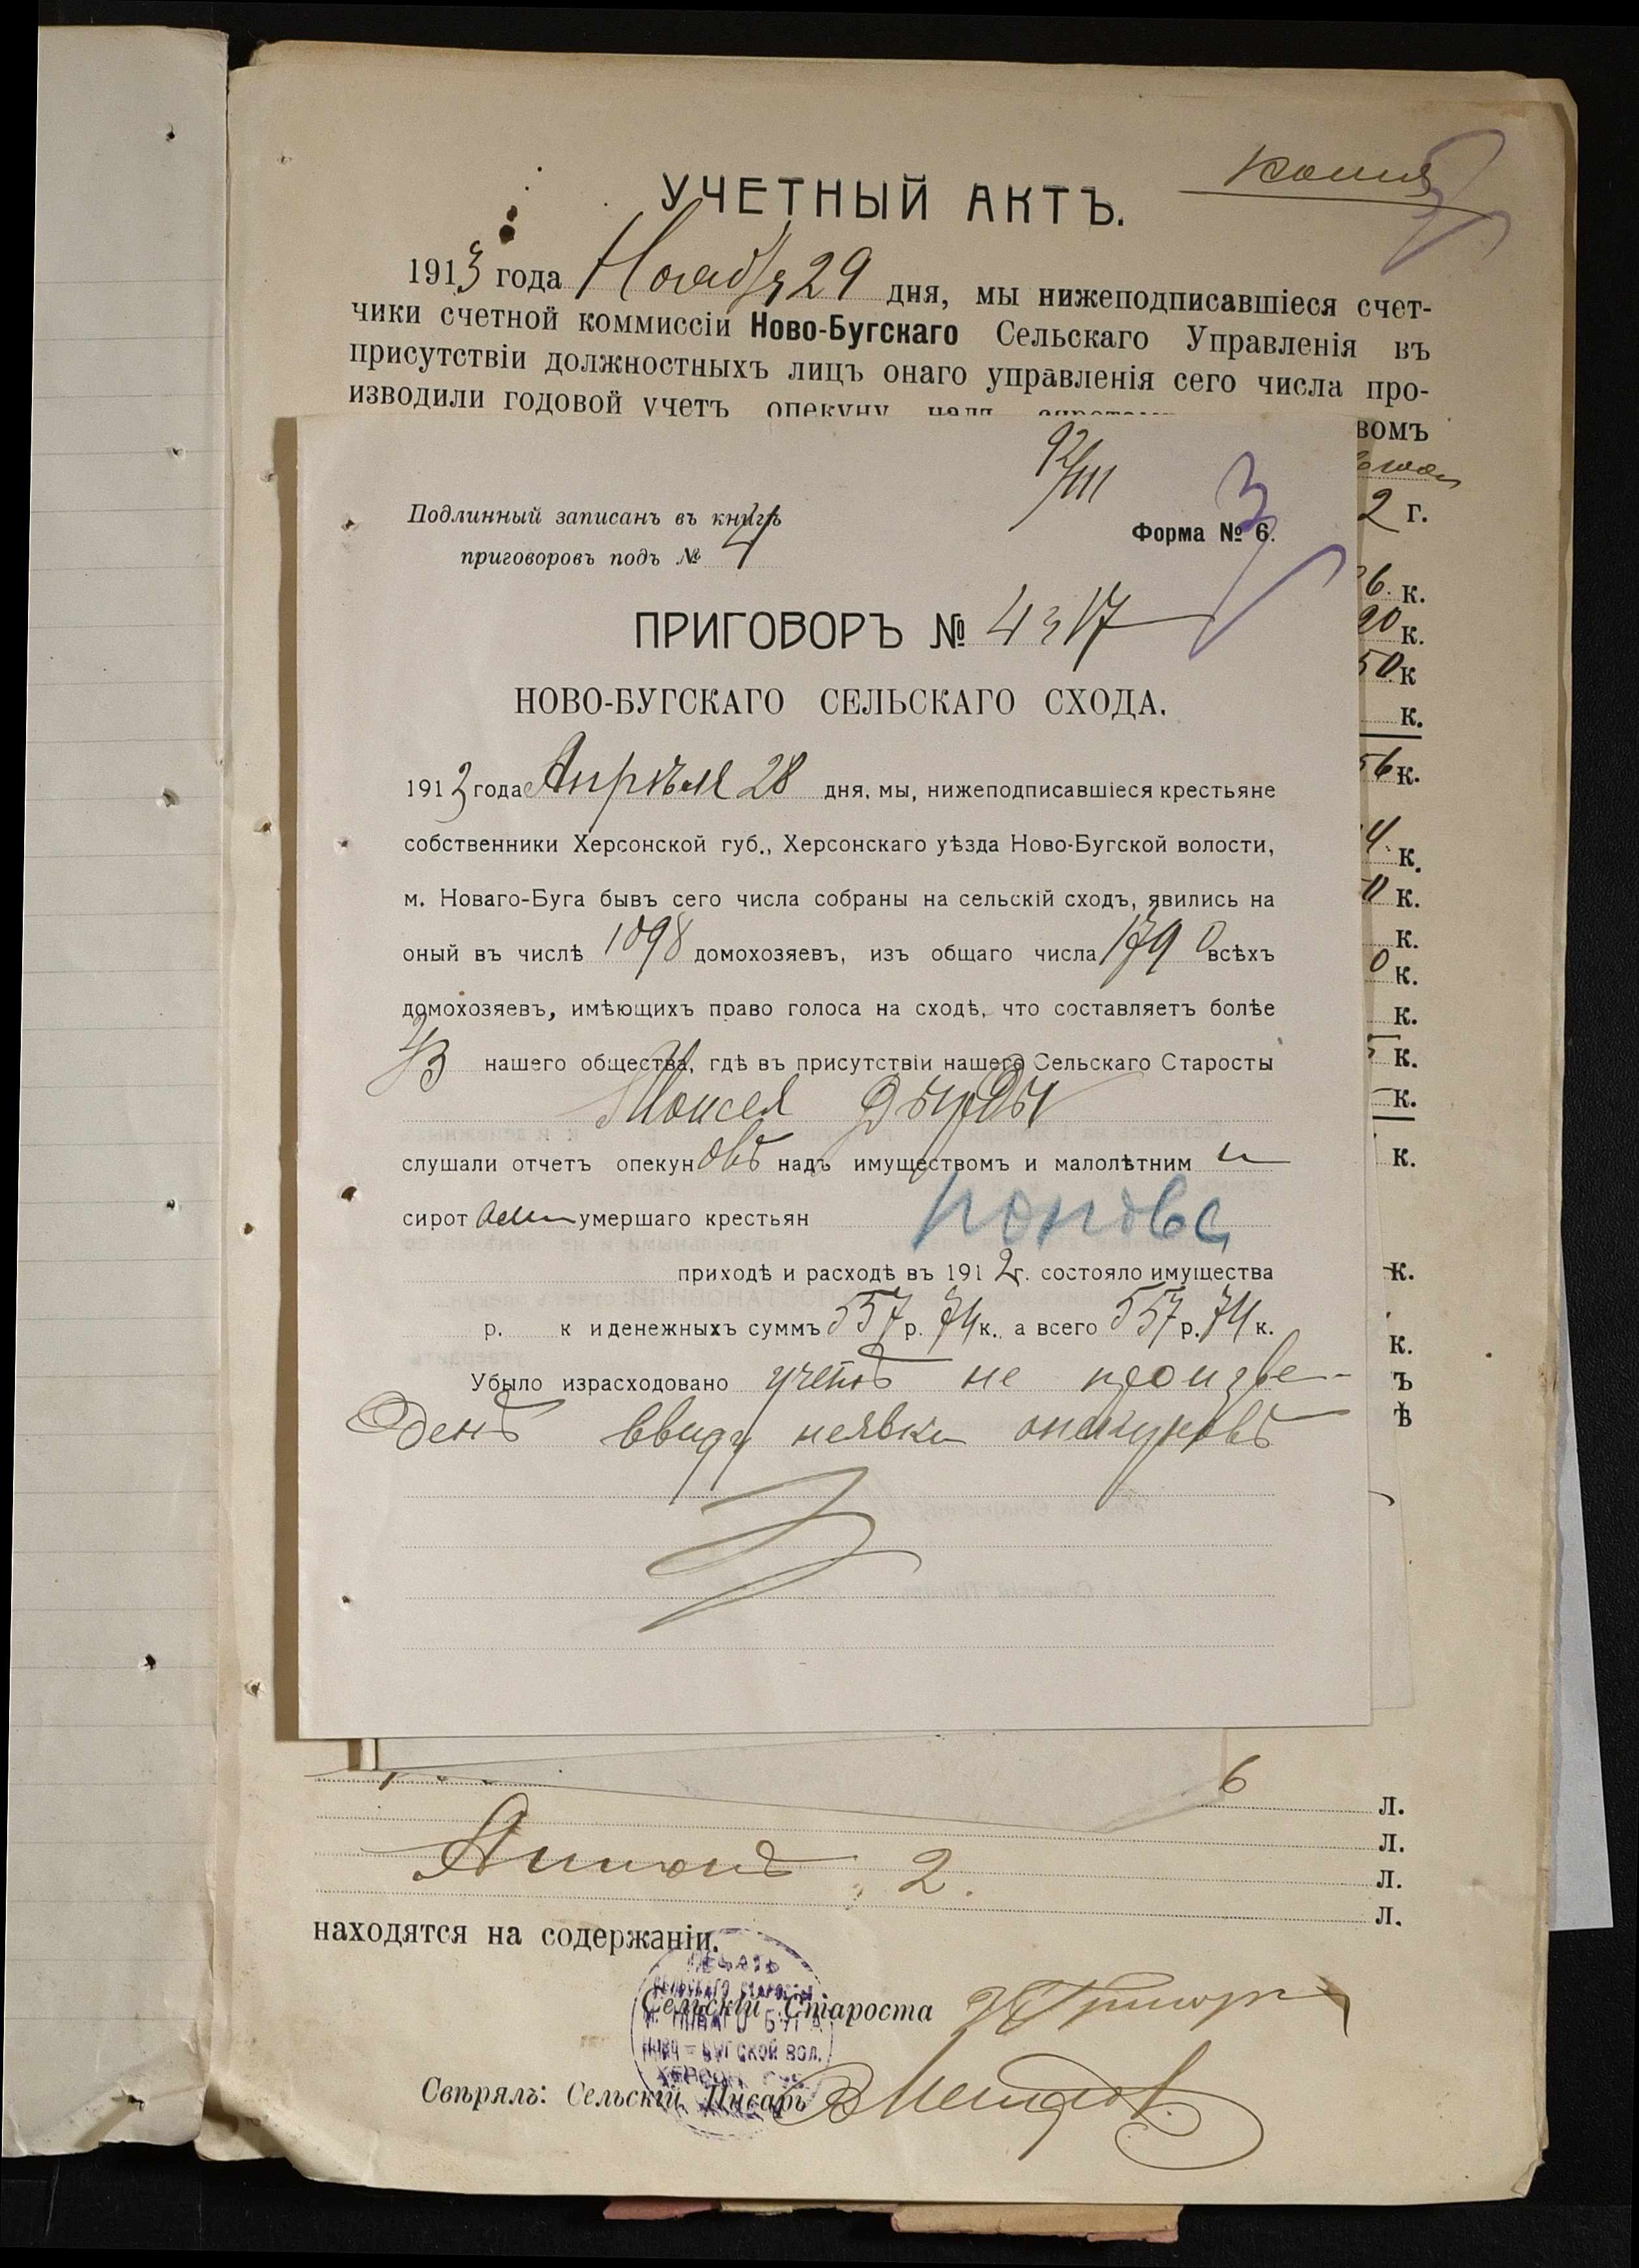 копия
УЧЕТНЫЙ АКТЪ.
1913 года Ноября 29 дня, мы нижеподписавшіеся счет-
чики счетной коммиссіи Ново-Бугскаго Сельскаго Управленія въ
присутствіи должностныхъ лицъ онаго управленія сего числа про-
изводили годовой учетъ опекуну надъ
вомъ
2 г.
6. к.
20 к.
50 к
к.
56 к.
4. к.
к.
к.
0 к.
к.
к.
к.
к.
к.
к.
ъ
ѣ
92/III
3
Подлинный записанъ въ книгѣ
приговоровъ подъ №
Форма № 6.
ПРИГОВОРЪ № 4317
НОВО-БУГСКАГО СЕЛЬСКАГО СХОДА.
1913 года Апрѣля 28 дня, мы, нижеподписавшіеся крестьяне
собственники Херсонской губ., Херсонскаго уѣзда Ново-Бугской волости,
м. Новаго-Буга бывъ сего числа собраны на сельскій сходъ, явились на
оный въ числѣ 1098 домохозяевъ, изъ общаго числа 1790 всѣхъ
домохозяевъ, имѣющихъ право голоса на сходѣ, что составляетъ болѣе
2/3 нашего общества, гдѣ въ присутствіи нашего Сельскаго Старосты
Моисея Дырды
слушали отчетъ опекуновъ надъ имуществомъ и малолѣтним и
сиротами умершаго крестьян Попова
приходѣ и расходѣ въ 1912 г. состояло имущества
р. к и денежныхъ суммъ 557 р. 74 к., а всего 557 р. 74 к.
Убыло израсходовано учетъ не произве-
денъ ввиду неявки опекуновъ
6
л.
л.
2. л.
л.
находятся на содержаніи.
Сельскій Староста
Свѣрялъ: Сельскій Писарь